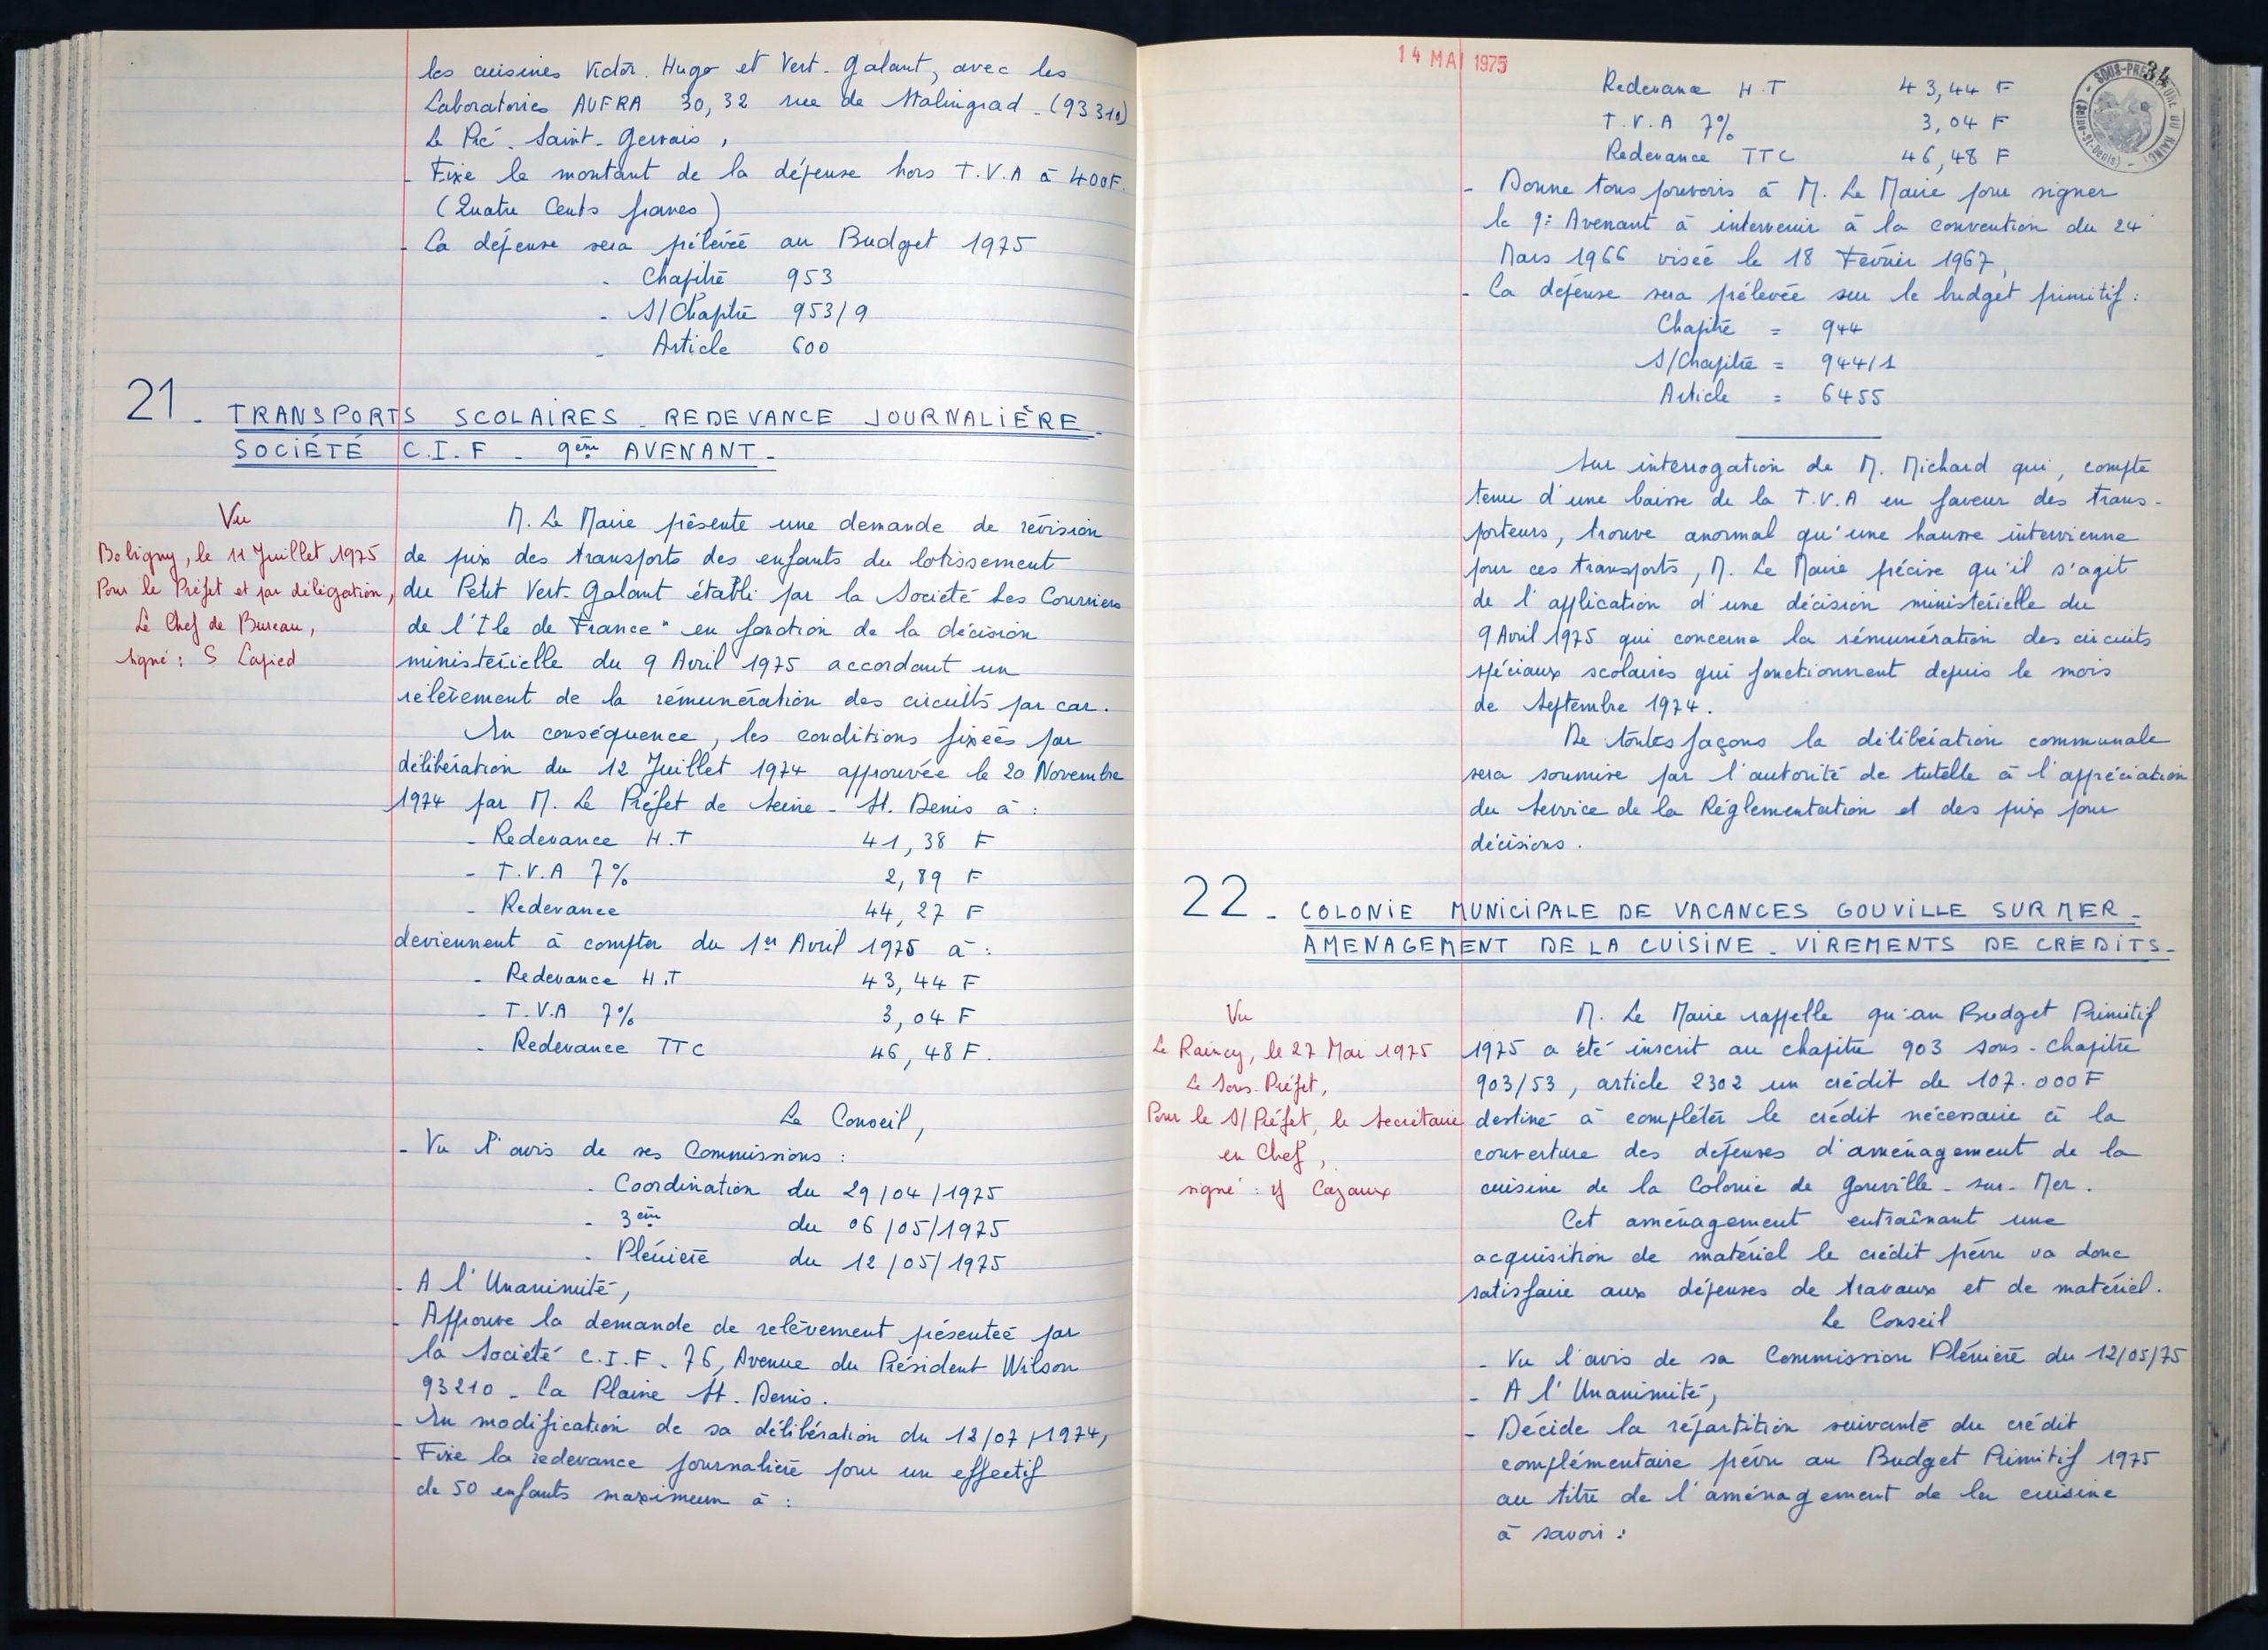 les cuisines Victor. Hugo et Vert. Galant, avec les
Laboratoires AUFRA 30, 32 rue de Stalingrad - (93310)
Le Pré. Saint. Gervais,
- Fixe le montant de la dépense hors T.V.A à 400F.
(Quatre Cents francs)
- La dépense sera prélevée au Budget 1975
- Chapitre 953
- S/Chapitre 953/9
- Article 600
21 - TRANSPORTS SCOLAIRES - REDEVANCE JOURNALIÈRE -
SOCIÉTÉ C.I.F - 9ème AVENANT -
Vu
Bobigny, le 11 Juillet 1975
Pour le Préfet et par délégation,
Le Chef de Bureau,
signé : S Lapied
M. Le Maire présente une demande de révision
de prix des transports des enfants du lotissement
du Petit Vert. Galant établi par la Société Les Courriers
de l'Ile de France" en fonction de la décision
ministérielle du 9 Avril 1975 accordant un
relèvement de la rémunération des circuits par car.
En conséquence, les conditions fixées par
délibération du 12 Juillet 1974 approuvée le 20 Novembre
1974 par M. Le Préfet de Seine - St. Denis à :
- Redevance H.T 41,38 F
- T.V.A 7% 2,89 F
- Redevance 44,27 F
deviennent à compter du 1er Avril 1975 à :
- Redevance H.T 43,44 F
- T.V.A 7% 3,04 F
- Redevance TTC 46,48 F.
Le Conseil,
- Vu l'avis de ses Commissions :
- Coordination du 29/04/1975
- 3ème du 06/05/1975
- Plénière du 12/05/1975
- A l'Unanimité,
- Approuve la demande de relèvement présentée par
la Société C.I.F - 76, Avenue du Président Wilson
93210 - La Plaine St. Denis.
- En modification de sa délibération du 12/07/1974,
- Fixe la redevance journalière pour un effectif
de 50 enfants maximum à :
14 MAI 1975
34
SOUS-PRÉFECTURE DU RAINCY
(Seine-St-Denis)
Redevance H.T 43,44 F
T.V.A 7% 3,04 F
Redevance TTC 46,48 F
- Donne tous pouvoirs à M. Le Maire pour signer
le 9: Avenant à intervenir à la convention du 24
Mars 1966 visée le 18 Février 1967,
- La dépense sera prélevée sur le budget primitif :
Chapitre = 944
S/Chapitre = 944/1
Article = 6455
Sur interrogation de M. Michard qui, compte
tenu d'une baisse de la T.V.A en faveur des trans-
porteurs, trouve anormal qu'une hausse intervienne
pour ces transports, M. Le Maire précise qu'il s'agit
de l'application d'une décision ministérielle du
9 Avril 1975 qui concerne la rémunération des circuits
spéciaux scolaires qui fonctionnent depuis le mois
de Septembre 1974.
De toutes façons la délibération communale
sera soumise par l'autorité de tutelle à l'appréciation
du Service de la Réglementation et des prix pour
décisions.
22 - COLONIE MUNICIPALE DE VACANCES GOUVILLE SUR MER -
AMENAGEMENT DE LA CUISINE - VIREMENTS DE CREDITS -
Vu
Le Raincy, le 27 Mai 1975
Le Sous-Préfet,
Pour le S/Préfet, le Secrétaire
en Chef,
signé : Y Cazaux
M. Le Maire rappelle qu'au Budget Primitif
1975 a été inscrit au chapitre 903 sous-chapitre
903/53, article 2302 un crédit de 107.000F
destiné à compléter le crédit nécessaire à la
couverture des dépenses d'aménagement de la
cuisine de la Colonie de Gouville-sur-Mer.
Cet aménagement entraînant une
acquisition de matériel le crédit prévu va donc
satisfaire aux dépenses de travaux et de matériel.
Le Conseil
- Vu l'avis de sa Commission Plénière du 12/05/75
- A l'Unanimité,
- Décide la répartition suivante du crédit
complémentaire prévu au Budget Primitif 1975
au titre de l'aménagement de la cuisine
à savoir :